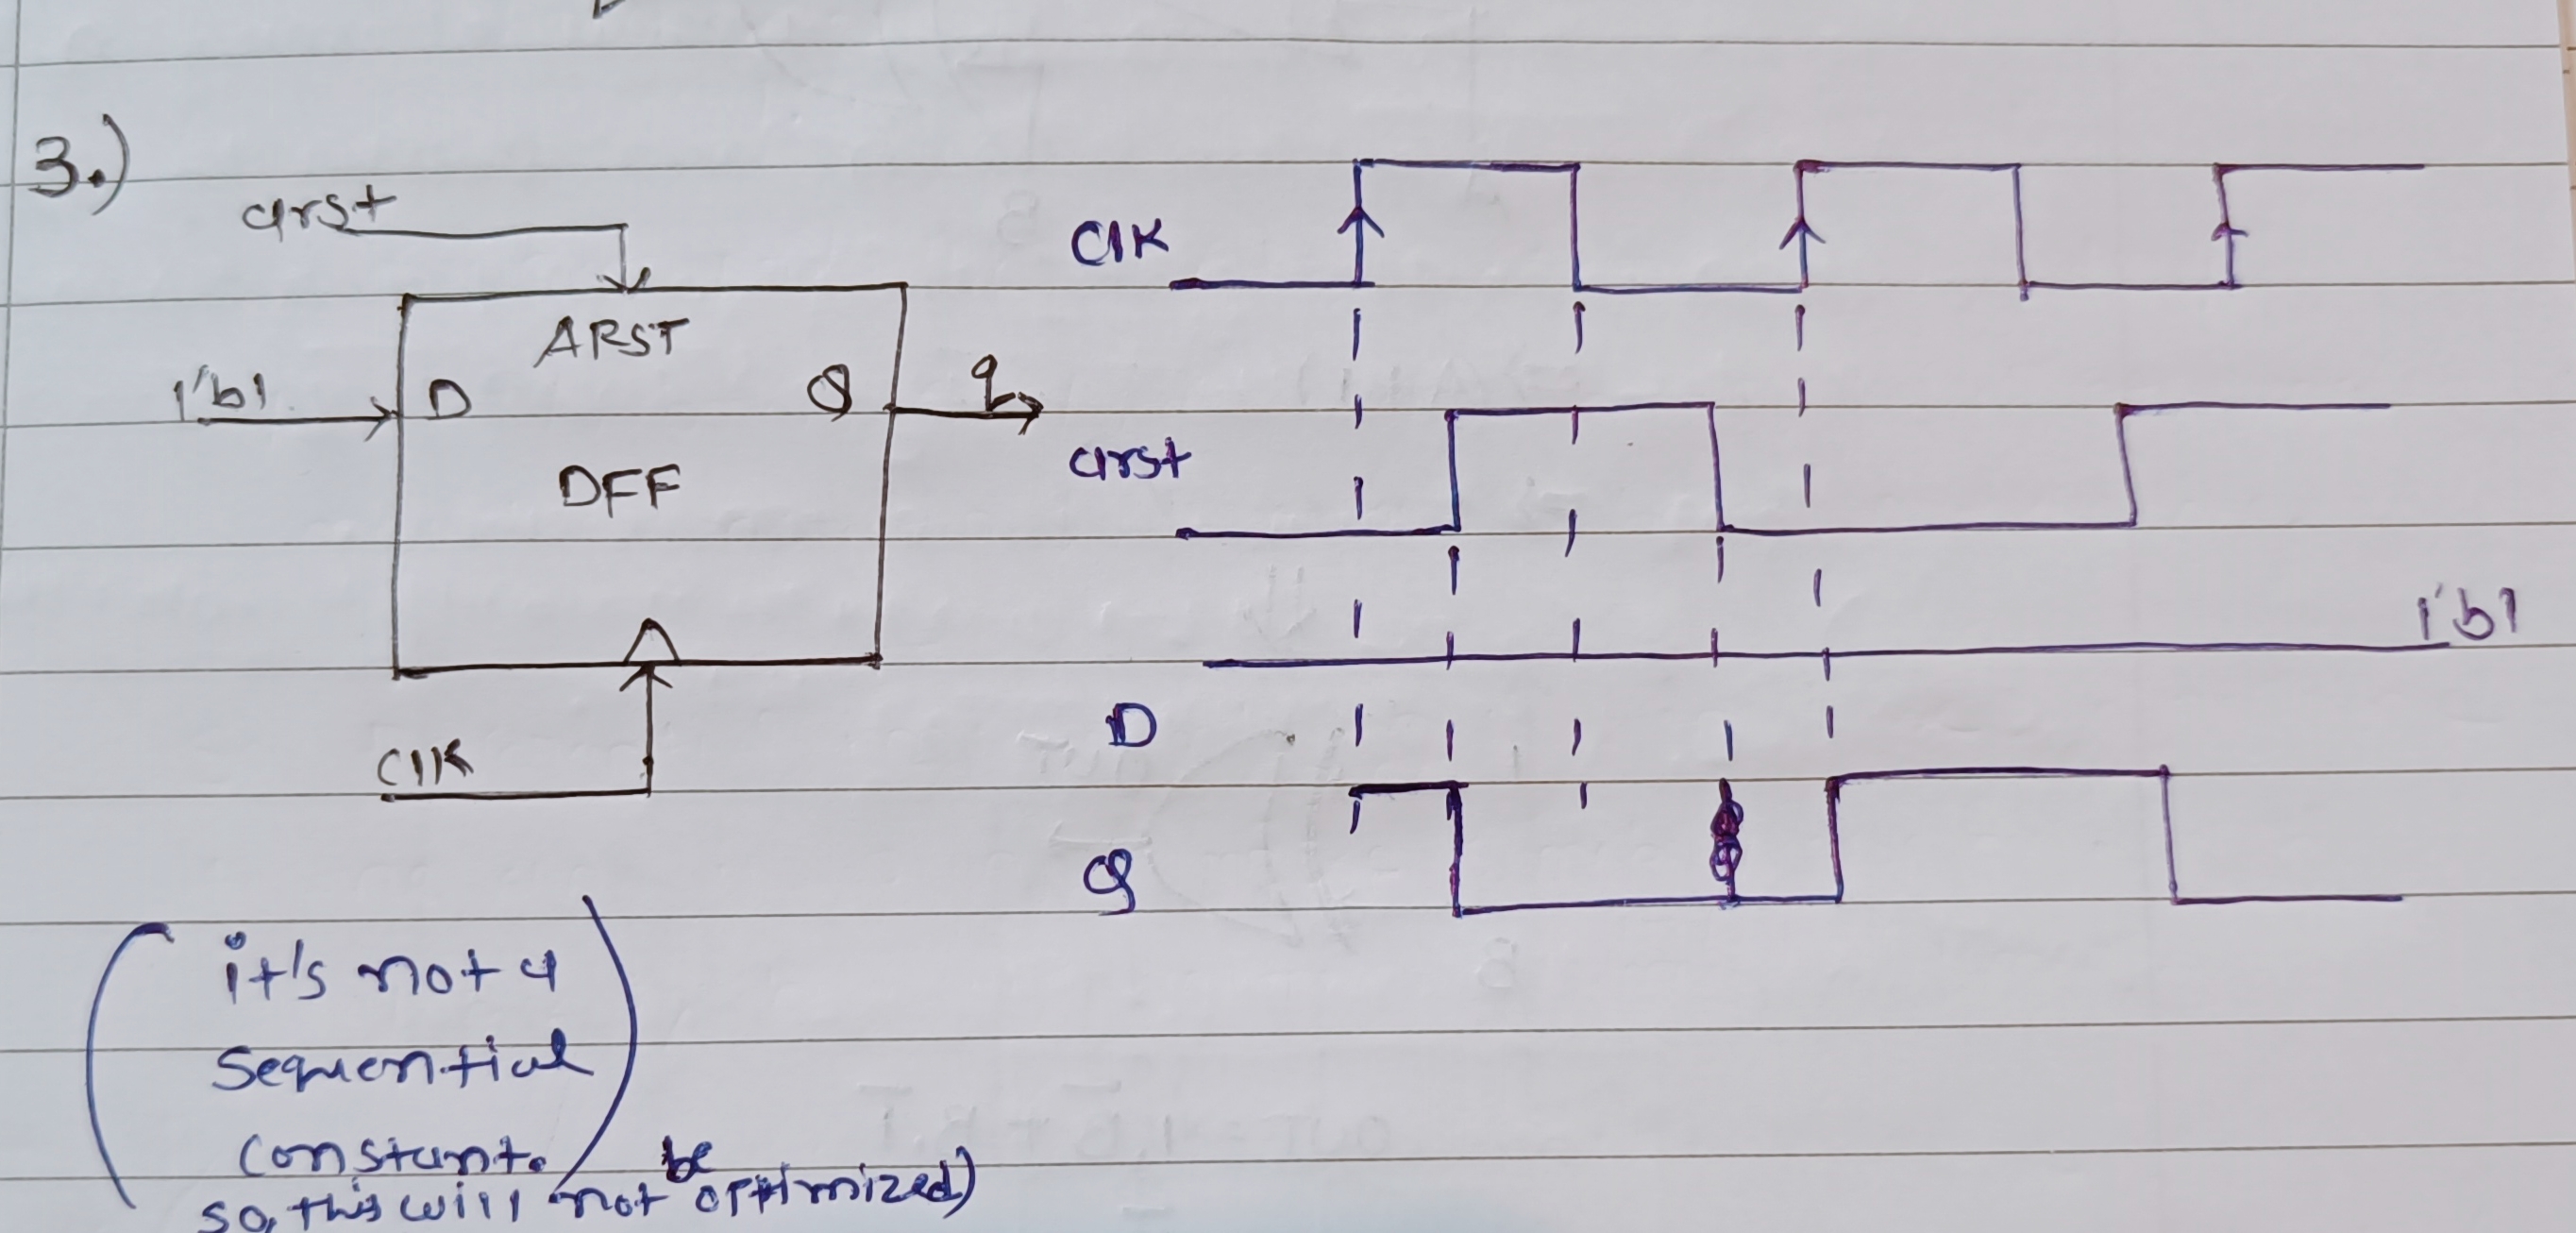 3.)
arst
ARST
1'b1
D
Q
q
DFF
clk
clk
arst
1'b1
D
Q
(it's not a
sequential
constant.)
so, this will not be optimized)